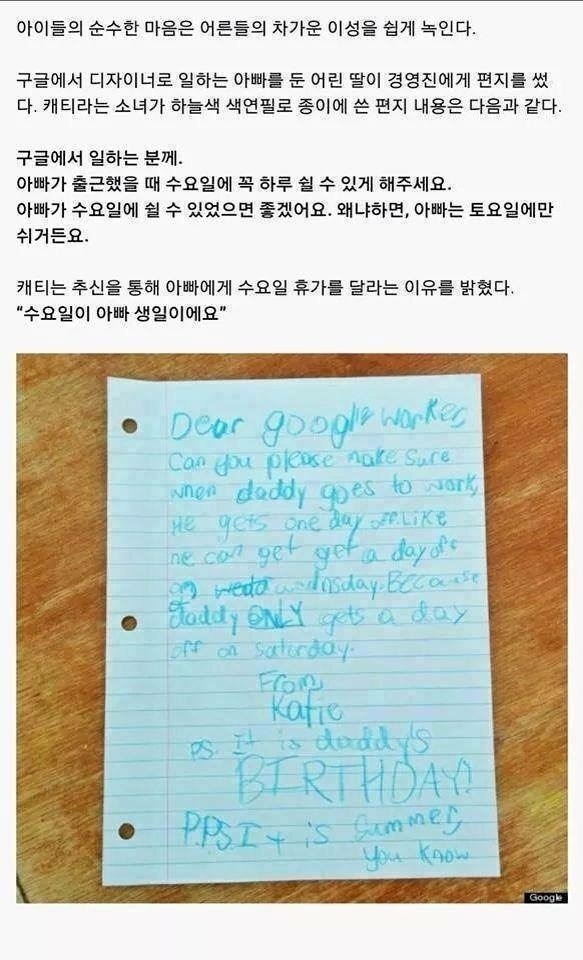 아이들의 순수한 마음은 어른들의 차가운 이성을 쉽게 녹인다.
구글에서 디자이너로 일하는 아빠를 둔 어린 딸이 경영진에게 편지를 썼
다. 캐티라는 소녀가 하늘색 색연필로 종이에 쓴 편지 내용은 다음과 같다.
구글에서 일하는 분께.
아빠가 출근했을 때 수요일에 꼭 하루 쉴 수 있게 해주세요.
아빠가 수요일에 쉴 수 있었으면 좋겠어요. 왜냐하면, 아빠는 토요일에만
쉬거든요.
캐티는 추신을 통해 아빠에게 수요일 휴가를 달라는 이유를 밝혔다.
“수요일이 아빠 생일이에요”
Dear google worker,
Can you please make sure
when daddy goes to work,
He gets one day off. Like
he can get get a day off
on wednsday. Because
daddy ONLY gets a day
off on saturday.
From,
Katie
P.S. It is daddy's
BIRTHDAY!
P.P.S. It is summer,
you know
Google